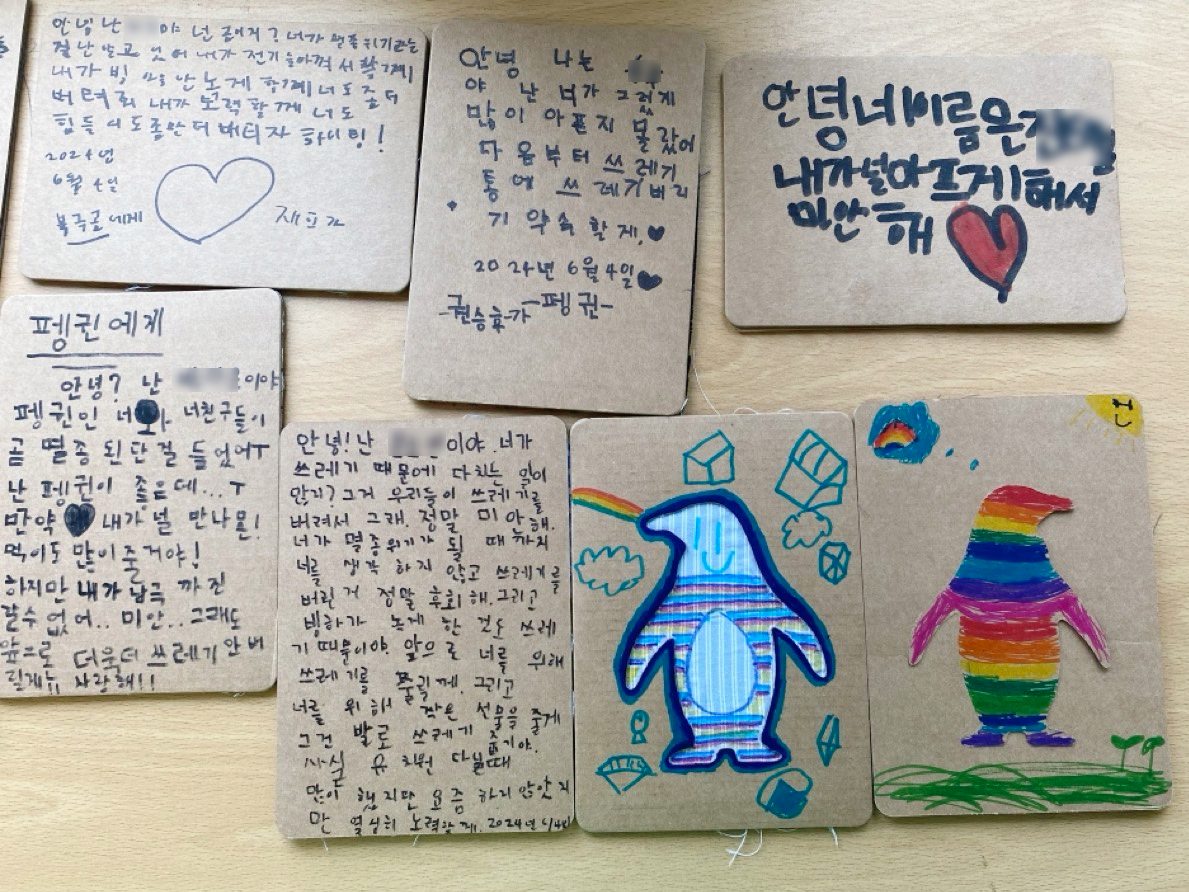 안녕 난 야 넌 곰이지? 너가 멸종위기라는
걸 난 알고 있어 내가 전기 아껴 써 볼게
내가 빙 안 녹게 할게 너도 좀 더
버텨줘 내가 노력할게 너도
힘들어도 좀만 더 버티자 하이팅!
2024년
6월 4일
북극곰에게
안녕 나는
야 난 너가 그렇게
많이 아픈지 몰랐어
다음부터 쓰레기
통에 쓰레기 버리
기 약속할게.
2024년 6월 4일
-펭귄-
안녕 네 이름은
내가 널 아프게 해서
미안해
펭귄에게
안녕? 난 이야
펭귄인 너와 너친구들이
곧 멸종 된단 걸 들었어ㅜ
난 펭귄이 좋은데...ㅜ
만약 내가 널 만나면!
먹이도 많이 줄거야!
하지만 내가 남극 까진
갈수 없어.. 미안.. 그래도
앞으로 더욱더 쓰레기 안버
릴게 사랑해!!
안녕! 난 이야. 너가
쓰레기 때문에 다치는 일이
많지? 그거 우리들이 쓰레기를
버려서 그래. 정말 미안해.
너가 멸종위기가 될 때까지
너를 생각 하지 않고 쓰레기를
버린 거 정말 후회해. 그리고
빙하가 녹게 한 것도 쓰레
기 때문이야. 앞으로 너를 위해
쓰레기를 줄일께. 그리고
너를 위해 작은 선물을 줄게
그건 발로 쓰레기 줍기야.
사실 유치원 다닐때
많이 했지만 요즘 하지 않았지
만 열심히 노력할께. 2024년